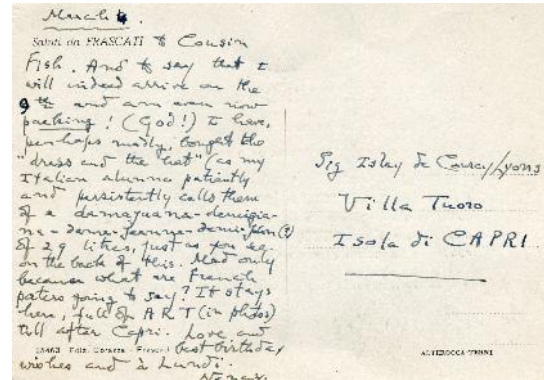 March 4.
Saluti da FRASCATI to Cousin
Fish. And to say that I
will indeed arrive on the
9th and am even now
packing! (God!) I have,
perhaps madly, bought the
"dress and the hat" (as my
Italian alunna patiently
and persistently calls them
of a damaguana-demigia-
na-dame-jeanne-demi-john(?)
of 29 litres, just as you see
on the back of this. Mad only
because what are French
porters going to say? It stays
here, full of ART (in photos)
till after Capri. Love and
best birthday
wishes and à Lundi.
Nancy.
Sig Islay de Courcy/Lyons
Villa Tuoro
Isola di CAPRI
ALTEROCCA TERNI